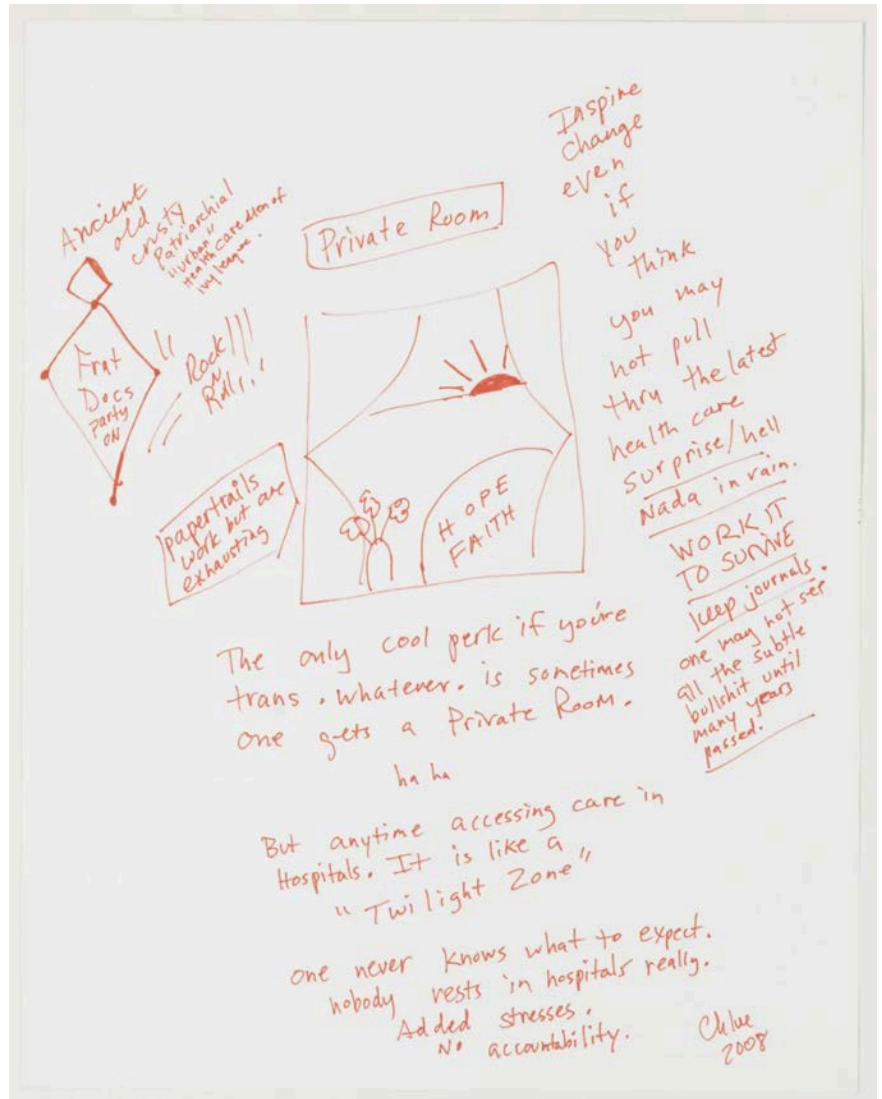 Ancient
old
crusty
Patriarchial
"urban"
Healthcare Men of
ivy league.
Frat
Docs
party
ON
" Rock!!!
n
Roll!."
Private Room
papertrails
work but are
exhausting
HOPE
FAITH
Inspire
change
even
if
you
think
you may
not pull
thru the latest
health care
surprise/hell
Nada in vain.
WORK IT
TO SURVIVE
keep journals.
one may not see
all the subtle
bullshit until
many years
passed.
The only cool perk if you're
trans. whatever. is sometimes
one gets a Private Room.
ha ha
But anytime accessing care in
Hospitals. It is like a
"Twilight Zone"
one never knows what to expect.
nobody rests in hospitals really.
Added stresses.
No accountability.
Chloe
2008